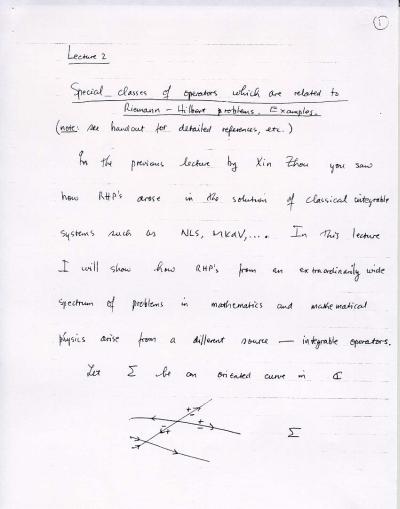 1
Lecture 2
Special classes of operators which are related to
Riemann - Hilbert problems. Examples.
(note: see handout for detailed references, etc.)
In the previous lecture by Xin Zhou you saw
how RHP's arose in the solution of classical integrable
systems such as NLS, MKdV, .... In this lecture
I will show how RHP's from an extraordinarily wide
spectrum of problems in mathematics and mathematical
physics arise from a different source — integrable operators.
Let Σ be an oriented curve in ℂ
+ - + - + - + -
Σ